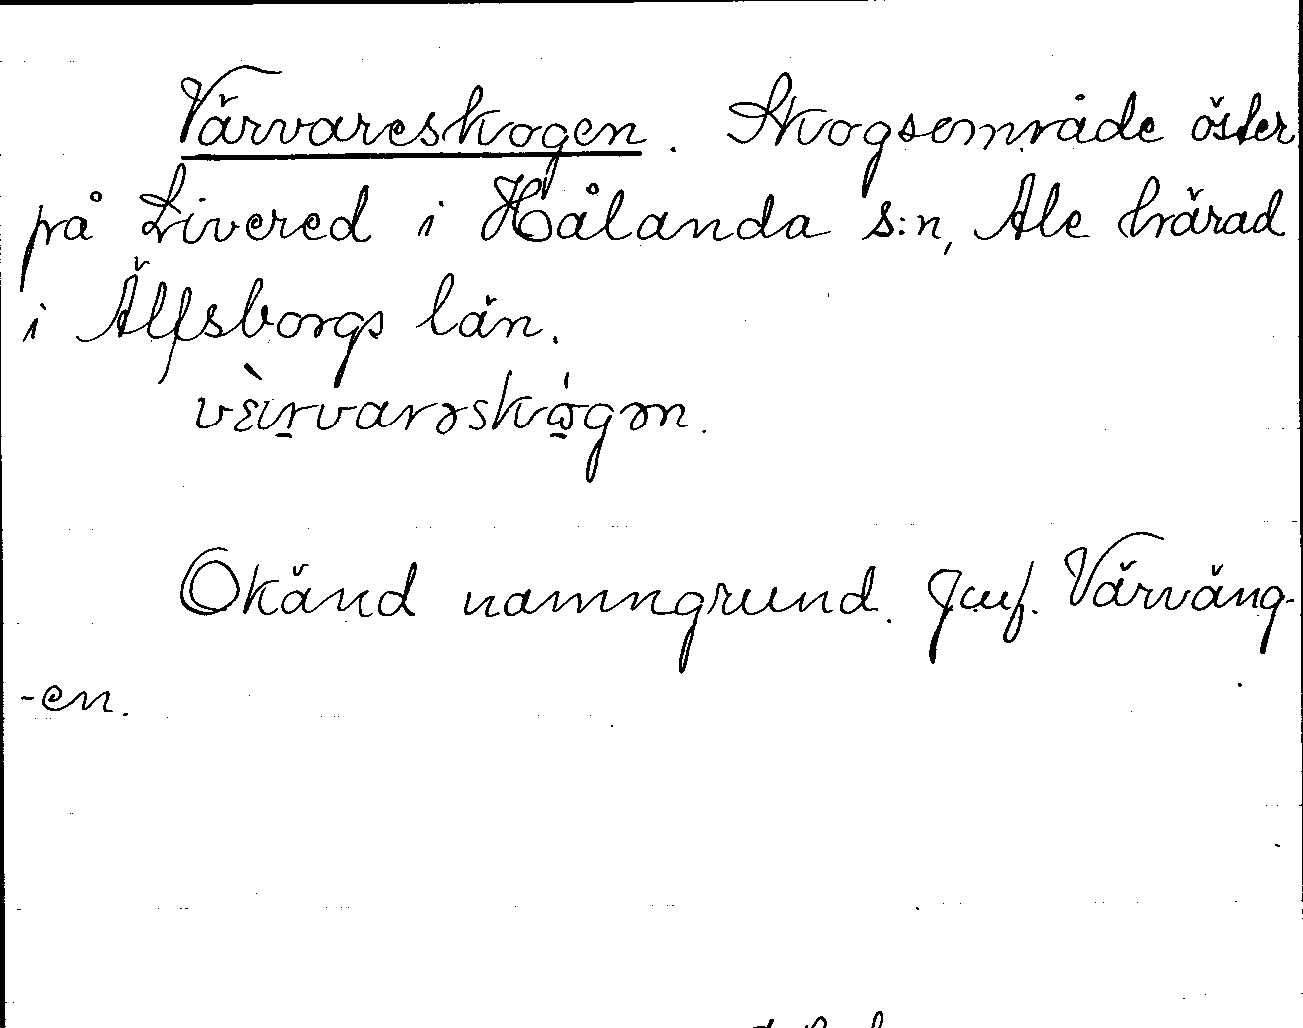 Värvareskogen. Skogsområde öster
på Livered i Hålanda s:n, Ale härad
i Älfsborgs län.
vɛ̀ırvarəskó̱gən.
Okänd namngrund. Jmf. Värväng-
-en.